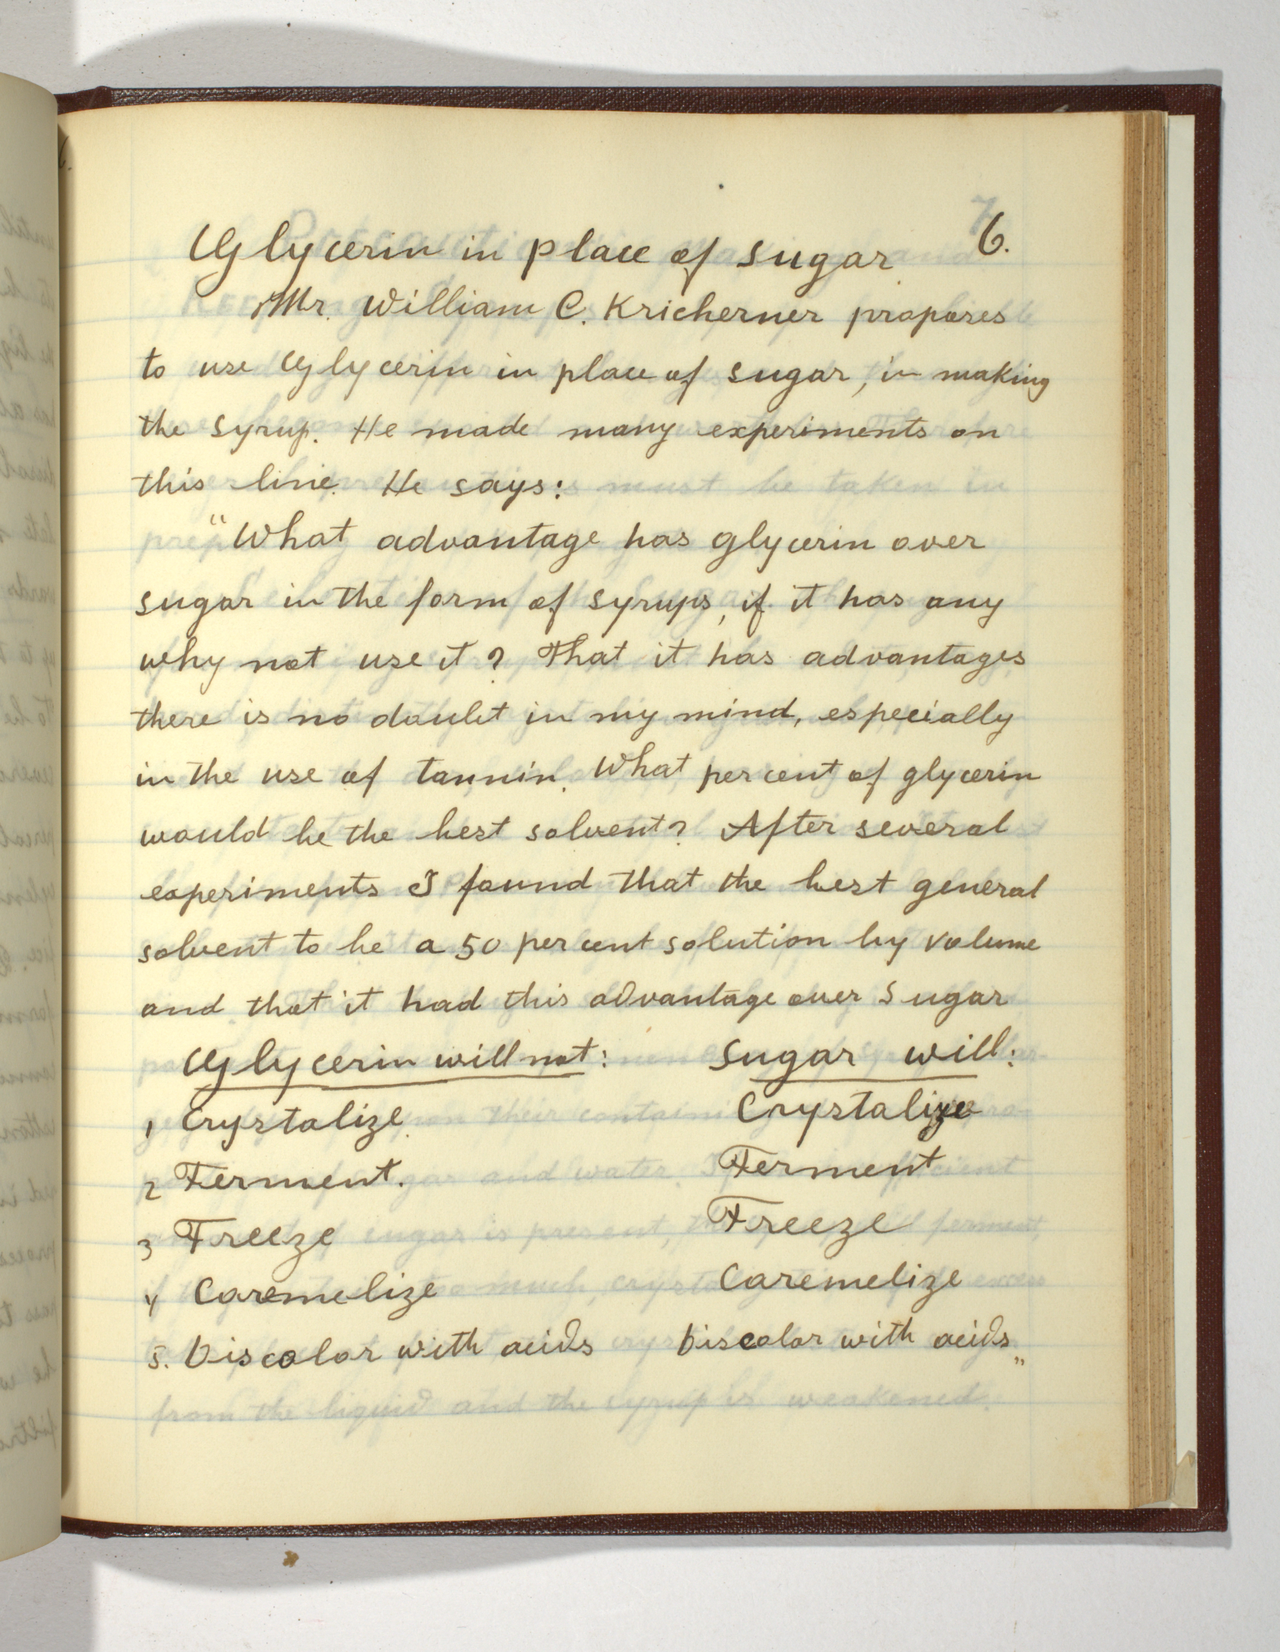 6.
Glycerin in place of sugar
Mr. William C. Kricherner propores
to use Glycerin in place of sugar, in making
the syrup. He made many experiments on
this line. He says:
"What advantage has glycerin over
sugar in the form of syrups, if it has any
why not use it? That it has advantages
there is no doubt in my mind, especially
in the use of tannin. What per cent of glycerin
would be the best solvent? After several
experiments I found that the best general
solvent to be a 50 per cent solution by volume
and that it had this advantage over sugar
Glycerin will not: Sugar will:
1 Crystalize. Crystalize
2 Ferment. Ferment
3 Freeze Freeze
4 Caremelize Caremelize
5. Discolor with acids Discolor with acids"
from the liquid and the syrup is weakened.